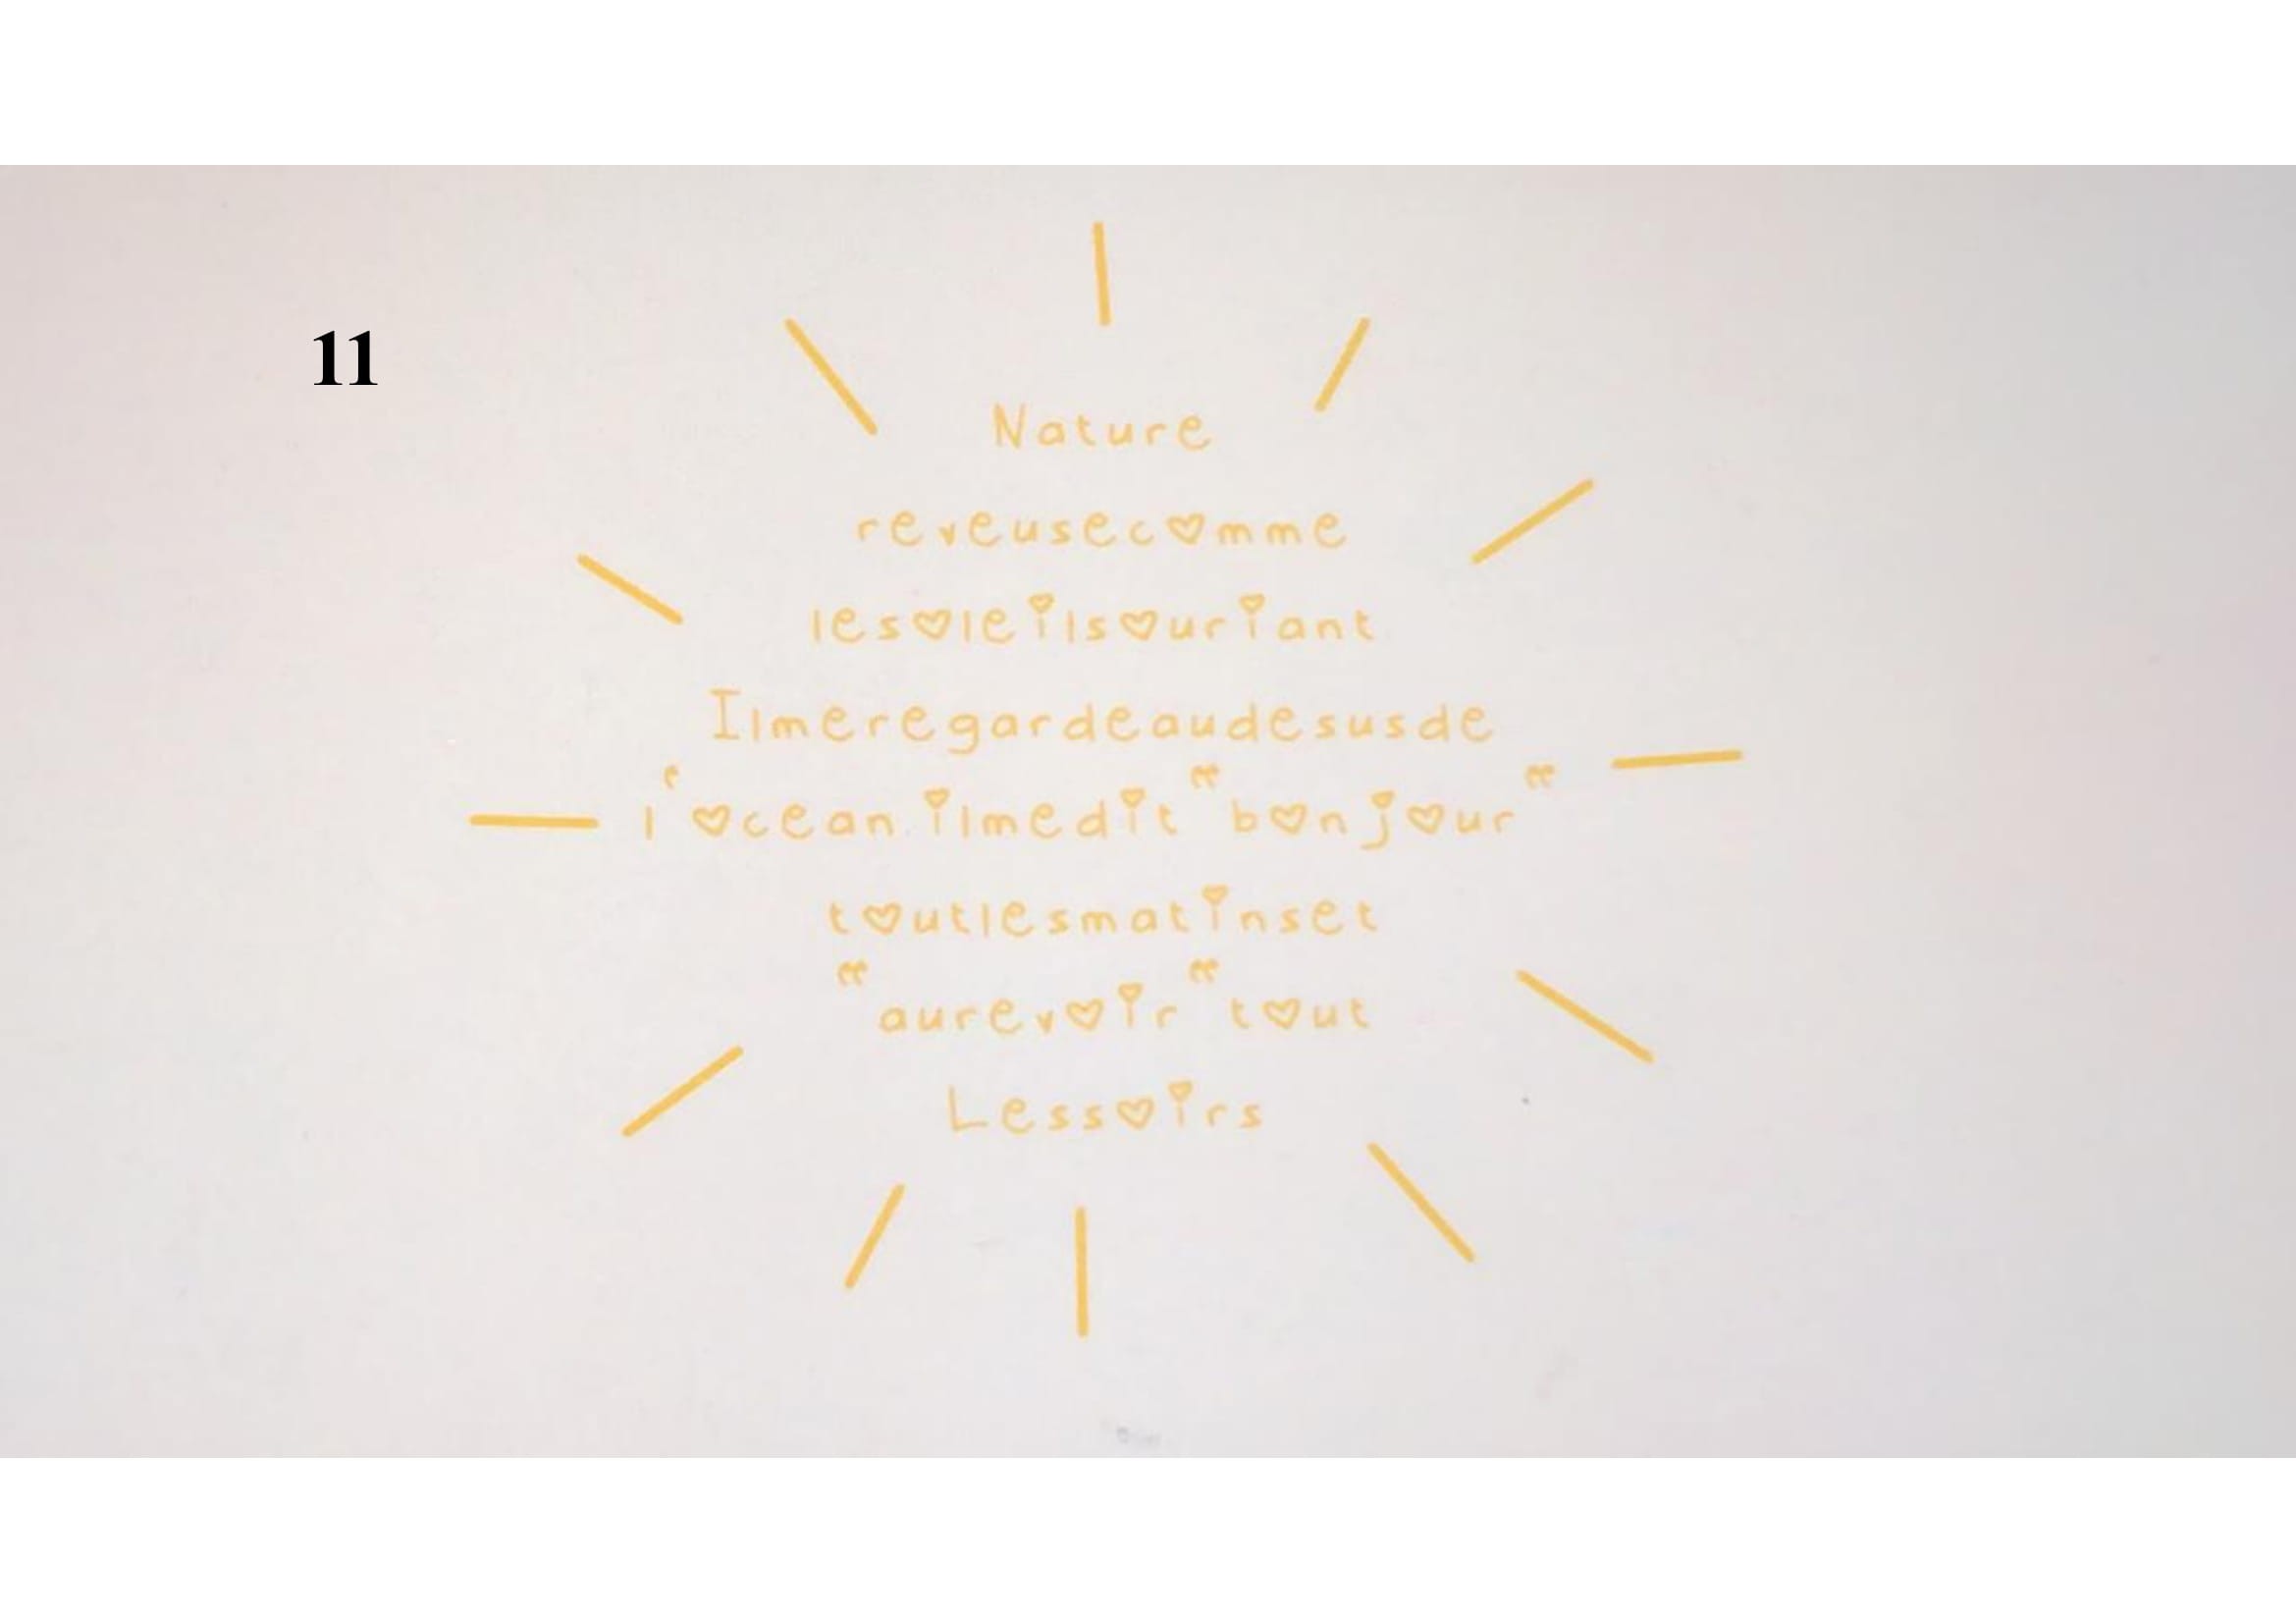 11
Nature
reveusecomme
lesoleilsouriant
Ilmeregardeaudesusde
l'ocean.ilmedit"bonjour"
toutlesmatinset
"aurevoir"tout
Lessoirs